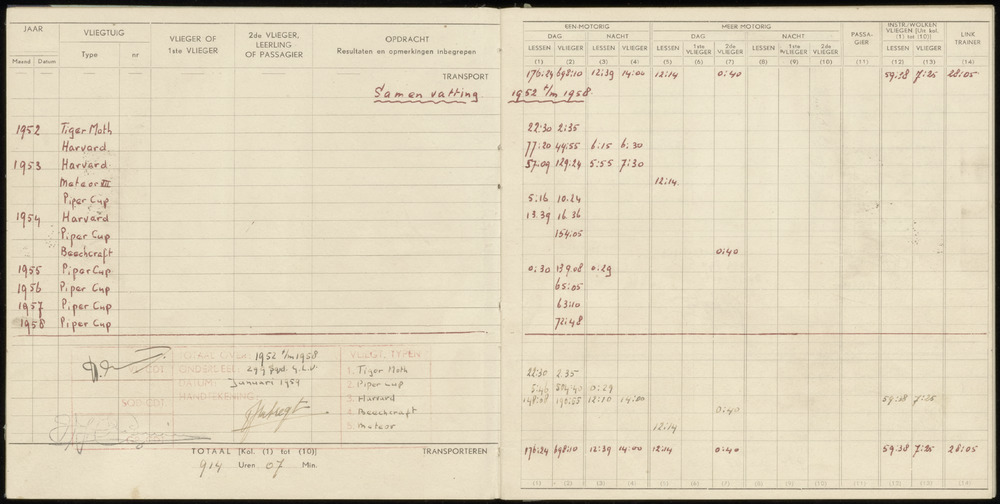 JAAR VLIEGTUIG VLIEGER OF 1ste VLIEGER 2de VLIEGER, LEERLING OF PASSAGIER OPDRACHT Resultaten en opmerkingen inbegrepen
Maand Datum Type nr
EEN-MOTORIG MEER-MOTORIG PASSA-GIER INSTR./WOLKEN VLIEGEN [Uit kol. (1) tot (10)] LINK TRAINER
DAG NACHT DAG NACHT
LESSEN VLIEGER LESSEN VLIEGER LESSEN 1ste VLIEGER 2de VLIEGER LESSEN 1ste VLIEGER 2de VLIEGER LESSEN VLIEGER
(1) (2) (3) (4) (5) (6) (7) (8) (9) (10) (11) (12) (13) (14)
TRANSPORT 176:24 698:10 12:39 14:00 12:14 0:40 59:38 7:25 28:05
Samenvatting 1952 t/m 1958
1952 Tiger Moth 22:30 2:35
Harvard 77:20 44:55 6:15 6:30
1953 Harvard 57:09 129:24 5:55 7:30
Meteor VII 12:14
Piper Cup 5:16 10:24
1954 Harvard 13:39 16:36
Piper Cup 154:05
Beechcraft 0:40
1955 Piper Cup 0:30 139:08 0:29
1956 Piper Cup 65:05
1957 Piper Cup 63:10
1958 Piper Cup 72:48
TOTAAL OVER: 1952 t/m 1958 VLIEGT. TYPEN
CDT ONDERDEEL: 299 Sqd. G.L.V. 1. Tiger Moth 22:30 2:35
DATUM: Januari 1959 2. Piper Cup 5:46 504:40 0:29
HANDTEKENING: 3. Harvard 148:08 190:55 12:10 14:00 59:38 7:25
4. Beechcraft 0:40
5. Meteor 12:14
TOTAAL [Kol. (1) tot (10)] TRANSPORTEREN 176:24 698:10 12:39 14:00 12:14 0:40 59:38 7:25 28:05
914 Uren 07 Min.
(1) (2) (3) (4) (5) (6) (7) (8) (9) (10) (11) (12) (13) (14)